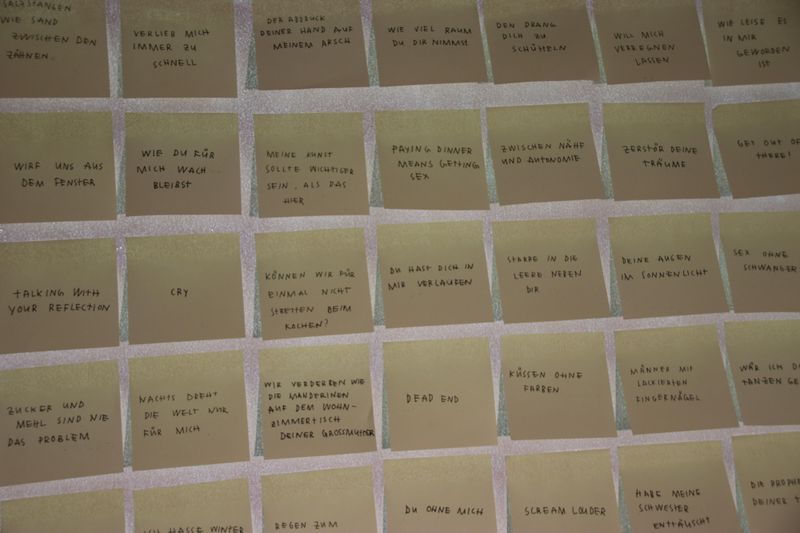 SALZSTANGEN
WIE SAND
ZWISCHEN DEN
ZÄHNEN.
VERLIEB MICH
IMMER ZU
SCHNELL
DER ABDRUCK
DEINER HAND AUF
MEINEM ARSCH
WIE VIEL RAUM
DU DIR NIMMST
DEN DRANG
DICH ZU
SCHÜTTELN
WILL MICH
VERREGNEN
LASSEN
WIE LEISE ES
IN MIR
GEWORDEN
IST
WIRF UNS AUS
DEM FENSTER
WIE DU FÜR
MICH WACH
BLEIBST
MEINE KUNST
SOLLTE WICHTIGER
SEIN, ALS DAS
HIER
PAYING DINNER
MEANS GETTING
SEX
ZWISCHEN NÄHE
UND AUTONOMIE
ZERSTÖR DEINE
TRÄUME
GET OUT OF
THERE!
TALKING WITH
YOUR REFLECTION
CRY
KÖNNEN WIR FÜR
EINMAL NICHT
STREITEN BEIM
KOCHEN?
DU HAST DICH IN
MIR VERLAUFEN
STARRE IN DIE
LEERE NEBEN
DIR
DEINE AUGEN
IM SONNENLICHT
SEX OHNE
SCHWANGER
ZUCKER UND
MEHL SIND NIE
DAS PROBLEM
NACHTS DREHT
DIE WELT NUR
FÜR MICH
WIR VERDERBEN WIE
DIE MANDERINEN
AUF DEM WOHN-
ZIMMERTISCH
DEINER GROSSMUTTER
DEAD END
KÜSSEN OHNE
FARBEN
MÄNNER MIT
LACKIERTEN
FINGERNÄGEL
WÄR ICH D
TANZEN GE
ICH HASSE WINTER
REGEN ZUM
DU OHNE MICH
SCREAM LOUDER
HABE MEINE
SCHWESTER
ENTTÄUSCHT
DIE PROPH
DEINER